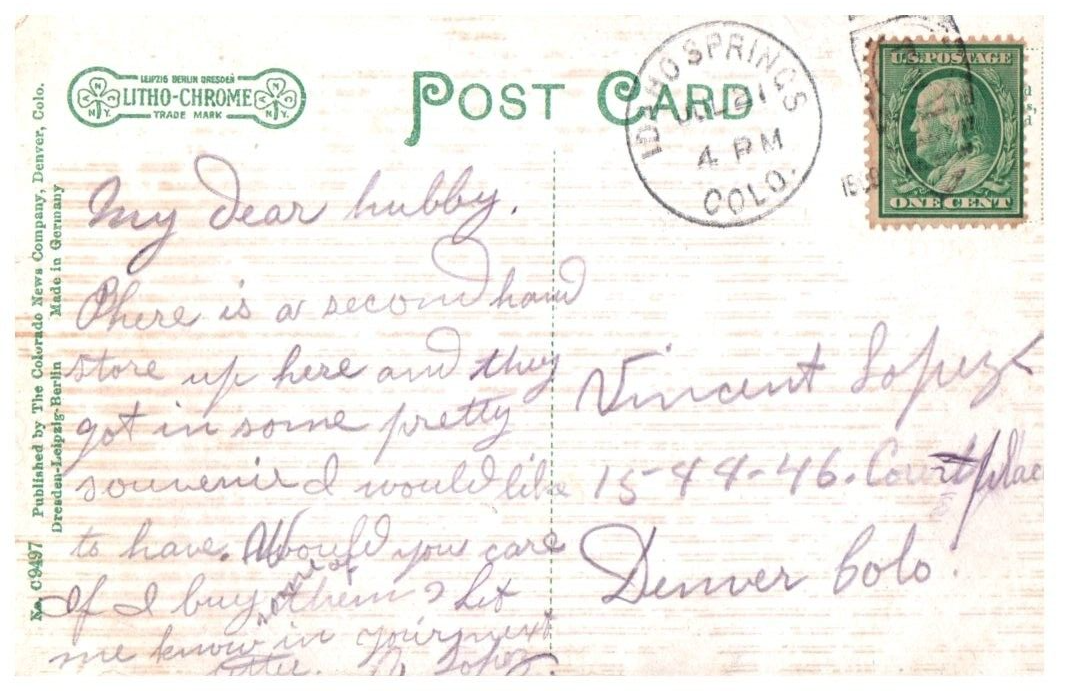 LEIPZIG BERLIN DRESDEN
LITHO-CHROME
TRADE MARK
N.Y.
N.Y.
POST CARD
IDAHO SPRINGS
JUL 21
4 PM
COLO.
U.S. POSTAGE
ONE CENT
No. C9497 Published by The Colorado News Company, Denver, Colo.
Dresden-Leipzig-Berlin Made in Germany
My dear hubby.
There is a second hand
store up here and they
got in some pretty
souvenir I would like
to have. Would you care
If I buy some of them? Let
me know in your next
letter. Lopez.
Vincent Lopez
15-44-46. Court place
Denver Colo.